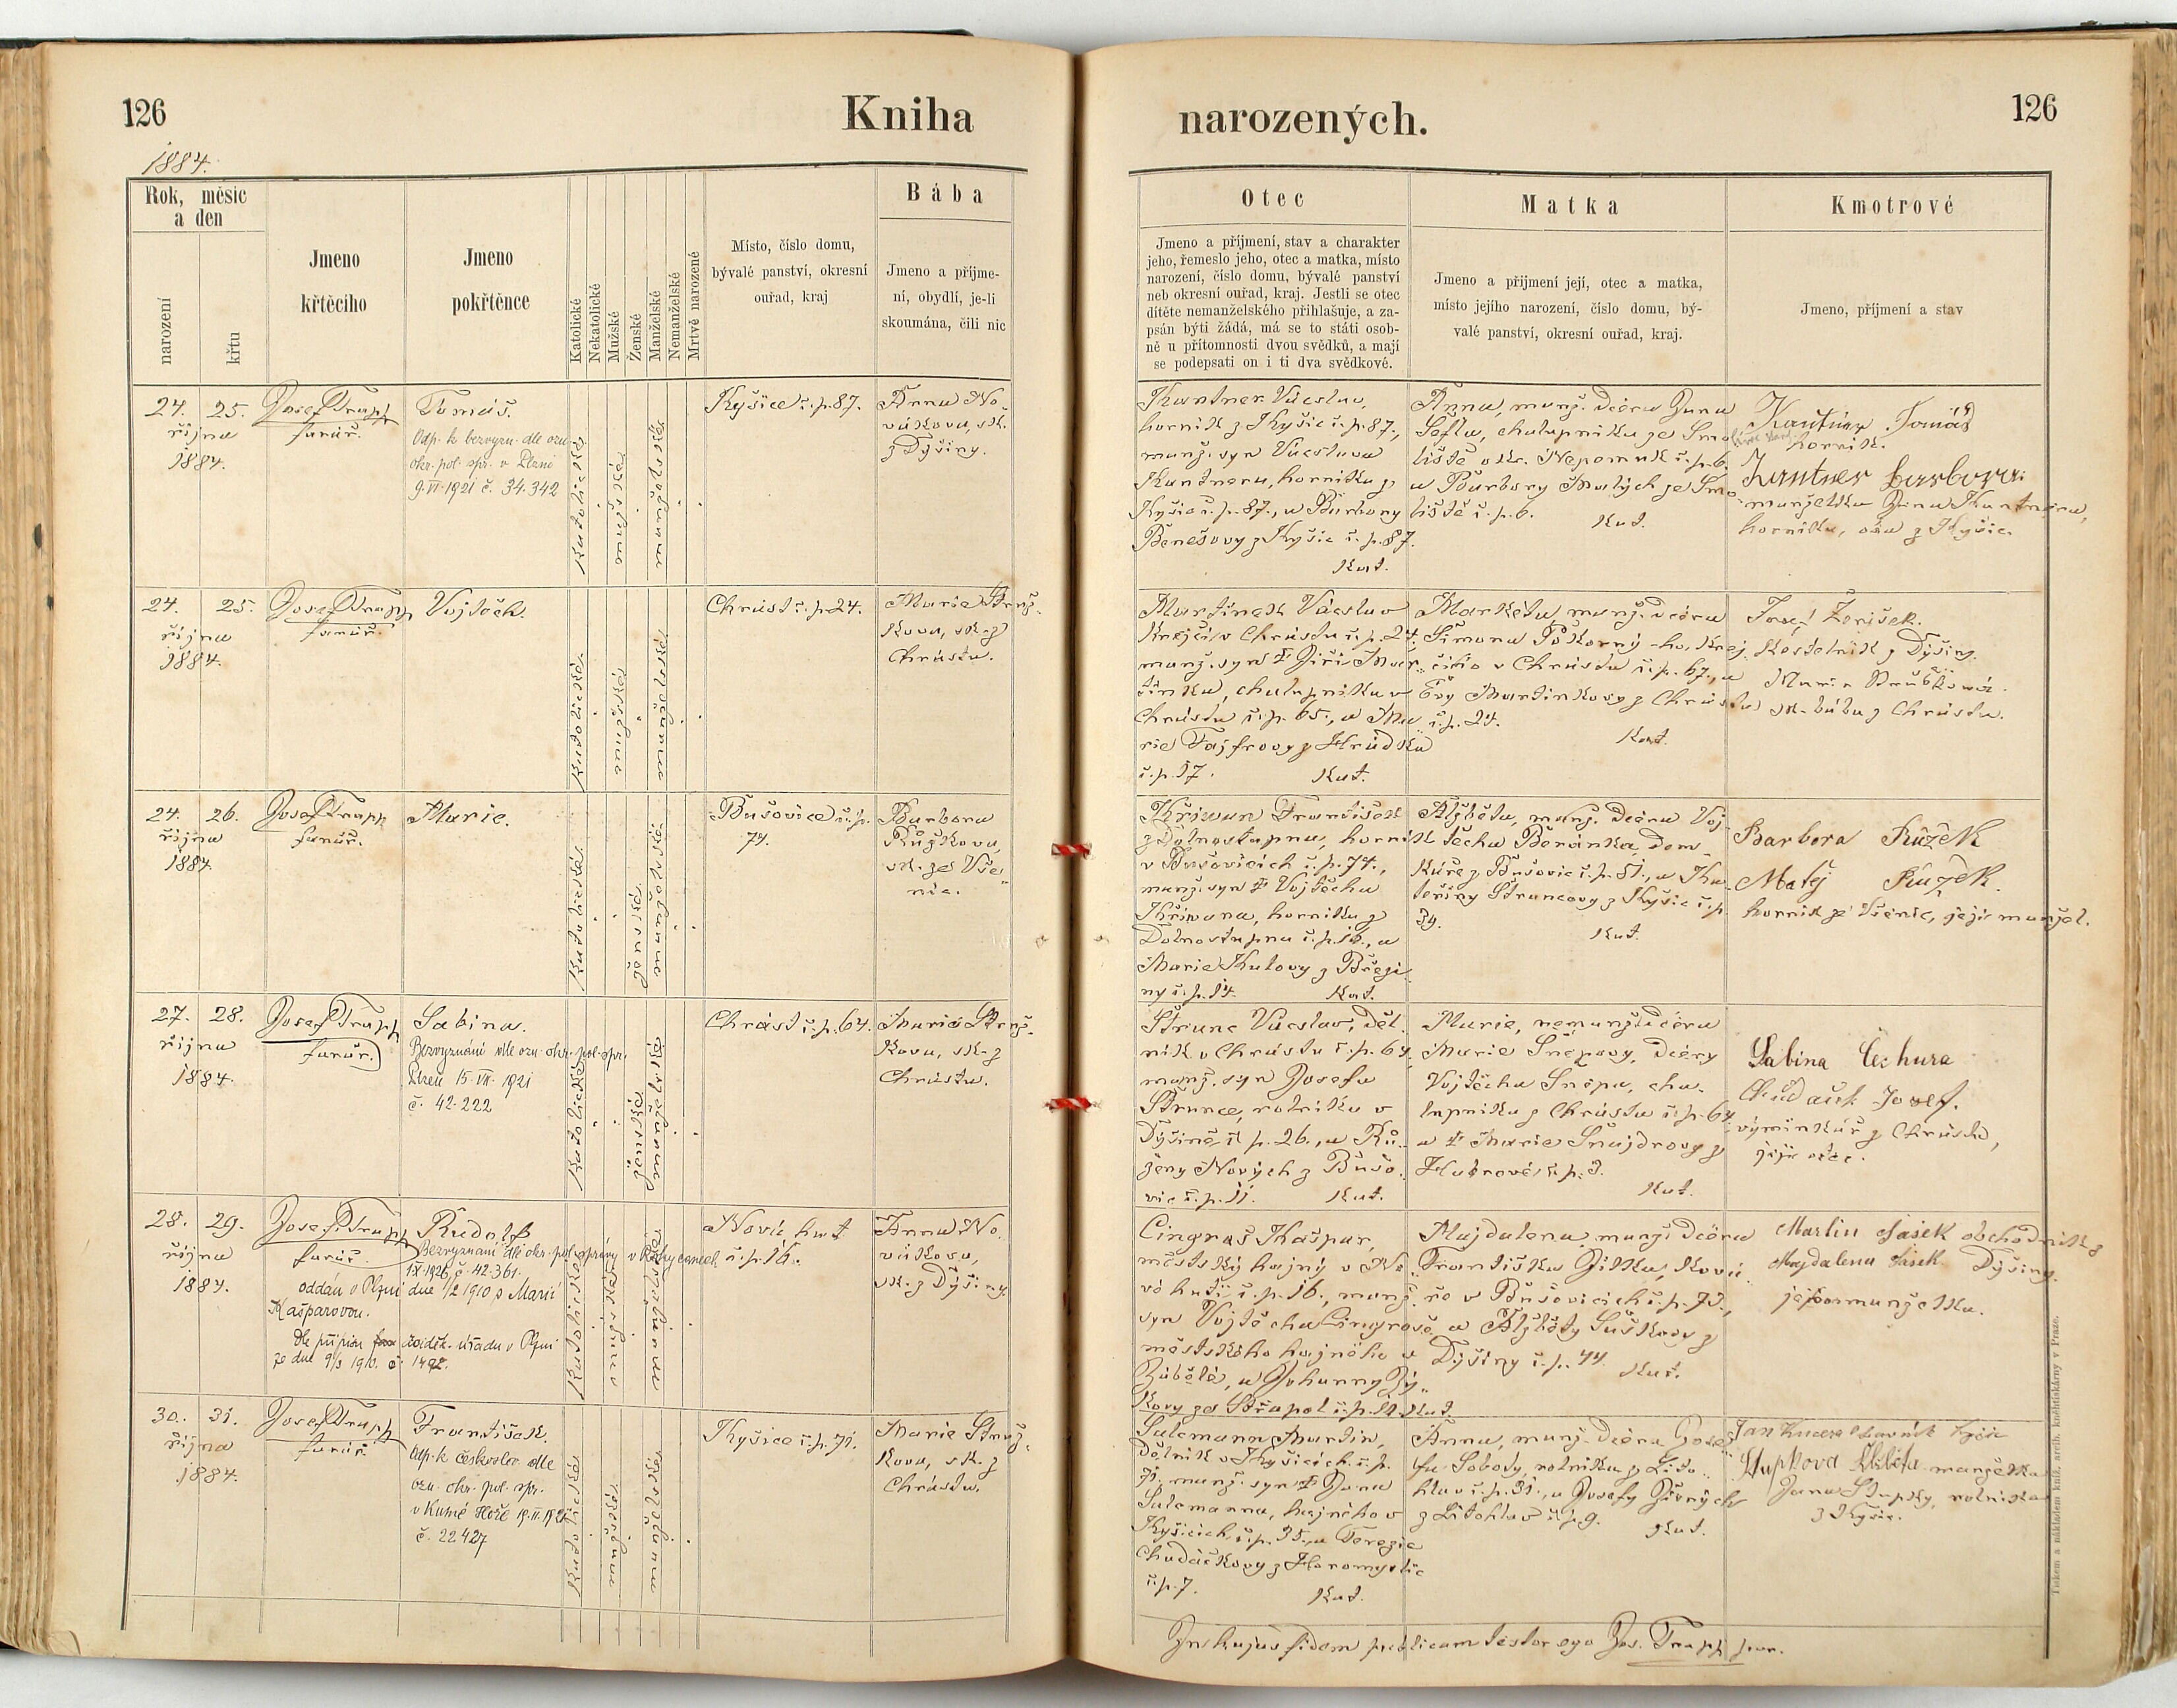 126
Kniha
narozených.
126
1884.
Rok, měsíc
a den
narození
křtu
Jmeno
křtěcího
Jmeno
pokřtěnce
Katolické
Nekatolické
Mužské
Ženské
Manželské
Nemanželské
Mrtvě narozené
Místo, číslo domu,
bývalé panství, okresní
ouřad, kraj
Bába
Jmeno a příjme-
ní, obydlí, je-li
skoumána, čili nic
Otec
Jmeno a příjmení, stav a charakter
jeho, řemeslo jeho, otec a matka, místo
narození, číslo domu, bývalé panství
neb okresní ouřad, kraj. Jestli se otec
dítěte nemanželského přihlašuje, a za-
psán býti žádá, má se to státi osob-
ně u přítomnosti dvou svědků, a mají
se podepsati on i ti dva svědkové.
Matka
Jmeno a přijmení její, otec a matka,
místo jejího narození, číslo domu, bý-
valé panství, okresní ouřad, kraj.
Kmotrové
Jmeno, příjmení a stav
24. 25.
října
1884.
Josef Trapp
farář.
Tomáš.
Odp. k bezvyzn. dle ozn.
okr. pol. spr. v Plzni
9. VI. 1921 č. 34.342
katolické
mužské
manželské
Kyšice č. p. 87.
Anna No-
vákova, zk.
z Dýšiny.
Kantner Václav,
horník z Kyšic č. p. 87.,
manž. syn Václava
Kantnera, horníka z
Kyšic č. p. 87., a Barbory
Benešovy z Kyšic č. p. 87.
Kat.
Anna, manž. dcera Jana
Šefla, chalupníka ze Smo-
liště okr. Nepomuk č. p. 6.
a Barbory Malých ze Smo-
liště č. p. 6. Kat.
Kantner Tomáš
horník.
Kantner barbora
manželka Jana Kantnera,
horníka, oba z Kyšic.
24. 25.
října
1884.
Josef Trapp
farář.
Vojtěch.
katolické
mužské
manželské
Chrást č. p. 24.
Marie Struž-
kova, zk. z
Chrástu.
Martínek Václav
krejčí v Chrástu č. p. 24.
manž. syn † Jiří Mar-
tínka, chalupníka v
Chrástu č. p. 65., a Ma-
rie Fajfrovy z Hrádku
č. p. 17. Kat.
Markéta, manž. dcera
Šimona Pokorný-ho, krej-
čího v Chrástu č. p. 67., a
Evy Martínkovy z Chrástu
č. p. 24.
Kat.
Josef Zoríšek.
Kostelník z Dýšiny.
zk. bába z Chrástu.
24. 26.
října
1884.
Josef Trapp
farář.
Marie.
katolické
ženské
manželské
Bušovice č. p.
74.
Barbora
Růžkova,
zk. ze Vše-
nic.
Křiwan František
z Dolnostupna, horník
v Bušovicích č. p. 74.,
manž. syn † Vojtěcha
Křiwana, horníka z
Dolnostupna č. p. 16., a
Marie Kulovy z Březi-
ny č. p. 14. Kat.
Alžběta, manž. dcera Voj-
těcha Beránka dom-
káře z Bušovic č. p. 51., a Ka-
teřiny Štruncovy z Kyšic č. p.
34.
Kat.
Barbora Růžek
Matěj Růžek.
horník ze Všenic, její manžel.
27. 28.
října
1884.
Josef Trapp
farář.
Sabina.
Bezvyznání dle ozn. okr. pol. spr.
Plzeň 15. VII. 1921
č. 42.222
katolické
ženské
manželské
Chrást č. p. 64.
Marie Struž-
kova, zk. z
Chrástu.
Štrunc Václav, děl-
ník v Chrástu č. p. 64.,
manž. syn Josefa
Štrunce, rolníka v
Dýšině č. p. 26., a Rů-
ženy Nových z Bušo-
vic č. p. 11. Kat.
Marie, nemanž. dcera
Marie Šnepovy, dcery
Vojtěcha Šnepa, cha-
lupníka z Chrástu č. p. 64.
a † Marie Šnajdrovy z
č. p. 3.
Kat.
Sabina Čechura
Josef.
výminkář z Chrástu,
její otec.
28. 29.
října
1884.
Josef Trapp
farář.
Rudolf
Bezvyznání dle okr. pol. správy v Rokycanech
1. X. 1926 č. 42.361.
oddán v Plzni dne 1/2 1910 s Marií
Kašparovou.
Dle přípisu úřadu v Plzni
ze dne 9/3 1910. č. 1492.
katolické
mužské
manželské
Nová huť
č. p. 16.
Anna No-
vákova,
zk. z Dýšiny
Cingroš Kašpar,
městský hajný v No-
vé huti č. p. 16., manž.
syn Vojtěcha Cingroše
městského hajného v
Zábělé, a Johanny
ze Střapol č. p. 11. Kat.
Majdalena, manž. dcera
Františka Jílka, ková-
ře v Bušovicích č. p. 73.,
a Alžběty Suškovy z
Dýšiny č. p. 44.
Kat.
Martin Sašek obchodník z
Majdalena Sašek Dýšiny.
jeho manželka.
30. 31.
října
1884.
Josef Trapp
farář.
František.
Odp. k českoslov. dle
ozn. okr. pol. spr.
v Kutné Hoře
č. 22427
katolické
mužské
manželské
Kyšice č. p. 71.
Marie Struž-
kova, zk. z
Chrástu.
Salcmann Martin,
dělník v Kyšicích č. p.
71. manž. syn † Jana
Salcmanna, hajného v
Kyšicích č. p. 35., a Terezie
Chudáčkovy z Horomyslic
č. p. 7.
Kat.
Anna, manž. dcera Jose-
fa Soboty, rolníka z Lito-
hlav č. p. 31., a Josefy
z Litohlav č. p. 9. Kat.
Stupkova Alžběta manželka
Jana Stupky, rolníka
z Kyšic.
In hujus fidem publicam testor ego Jos. Trapp par.
Tiskem a nákladem kníž. arcib. knihtiskárny v Praze.